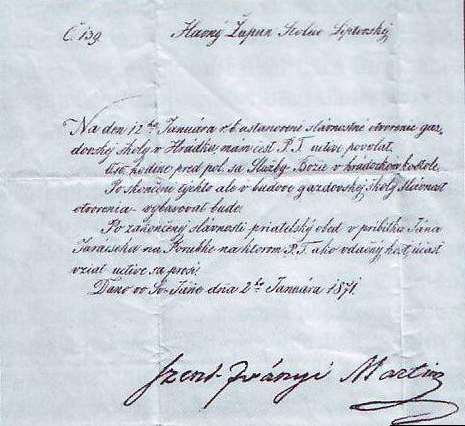 Č. 139. Hlavný Župan Stolice Liptovskej
Na deň 12ho Januára r. b. ustanovené slávnostné otvorenie gaz-
dovskej školy v Hrádku mám česť P. T. uctive povolať.
hodine pred pol. sa Služby Božie v hrádockom kostole.
Po skončení týchto ale v budove gazdovskej školy slávnosť
otvorenia vybavovať bude.
Po zakončenej slávnosti priatelský obed v príbitku Jána
na Porubke na ktorom P. T. ako vďačný hosť, účasť
vziať uctive sa prosí.
Dano vo Sv. Jáne dňa 2ho Januára 1871.
Szent-Iványi Martin